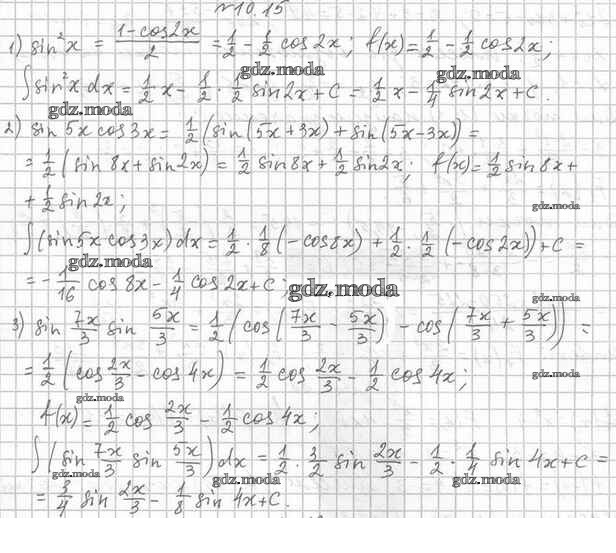 №10.15
1) sin²x = (1-cos2x)/2 = 1/2 - 1/2 cos2x; f(x)= 1/2 - 1/2 cos2x;
gdz.moda
∫sin²x dx = 1/2 x - 1/2 · 1/2 sin2x + C = 1/2 x - 1/4 sin2x + C
gdz.moda gdz.moda
2) sin 5x cos3x = 1/2 (sin(5x+3x) + sin(5x-3x)) =
= 1/2 (sin 8x + sin2x) = 1/2 sin8x + 1/2 sin2x; f(x)= 1/2 sin8x +
+ 1/2 sin2x;
gdz.moda
∫(sin5x cos3x)dx = 1/2 · 1/8 (-cos8x) + 1/2 · 1/2 (-cos2x)) + C =
gdz.moda gdz.moda
= - 1/16 cos 8x - 1/4 cos 2x + C;
gdz.moda
gdz.moda
3) sin 7x/3 sin 5x/3 = 1/2 (cos(7x/3 - 5x/3) - cos(7x/3 + 5x/3)) =
= 1/2 (cos 2x/3 - cos 4x) = 1/2 cos 2x/3 - 1/2 cos 4x;
gdz.moda
gdz.moda
f(x)= 1/2 cos 2x/3 - 1/2 cos 4x;
∫(sin 7x/3 sin 5x/3)dx = 1/2 · 3/2 sin 2x/3 - 1/2 · 1/4 sin 4x + C =
gdz.moda gdz.moda gdz.moda
= 3/4 sin 2x/3 - 1/8 sin 4x + C.
gdz.moda